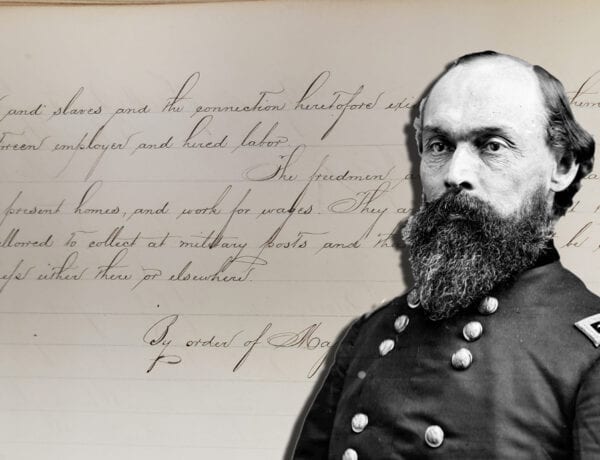 and slaves and the connection heretofore exi them
tween employer and hired labor.
The freedmen a
present homes, and work for wages. They a
llowed to collect at military posts and th be
ess either there or elsewhere.
By order of Maj